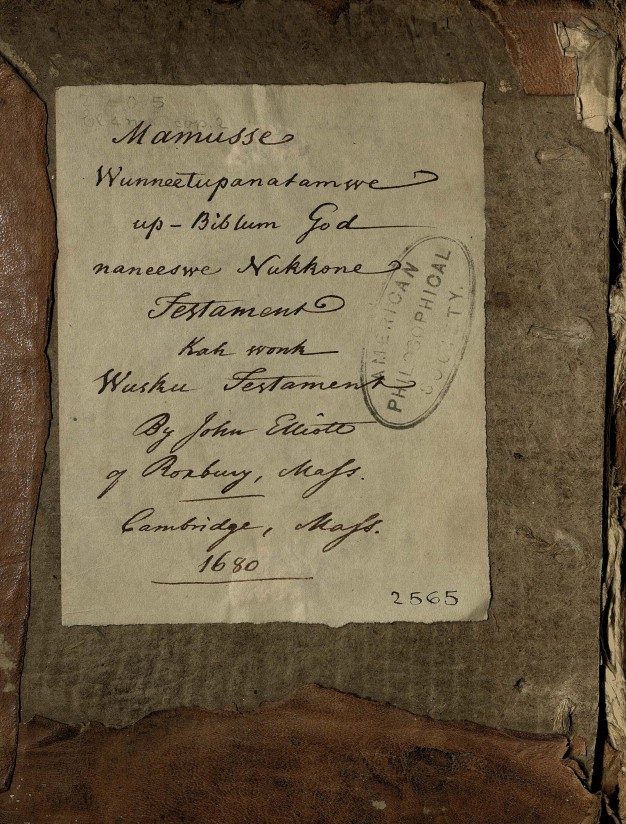 Mamusse
Wunneetupanatamwe
up-Biblum God
naneeswe Nukkone
Testament
Kah wonk
Wusku Testament
By John Elliott
of Roxbury, Mass.
Cambridge, Mass.
1680
AMERICAN
PHILOSOPHICAL
SOCIETY.
2565